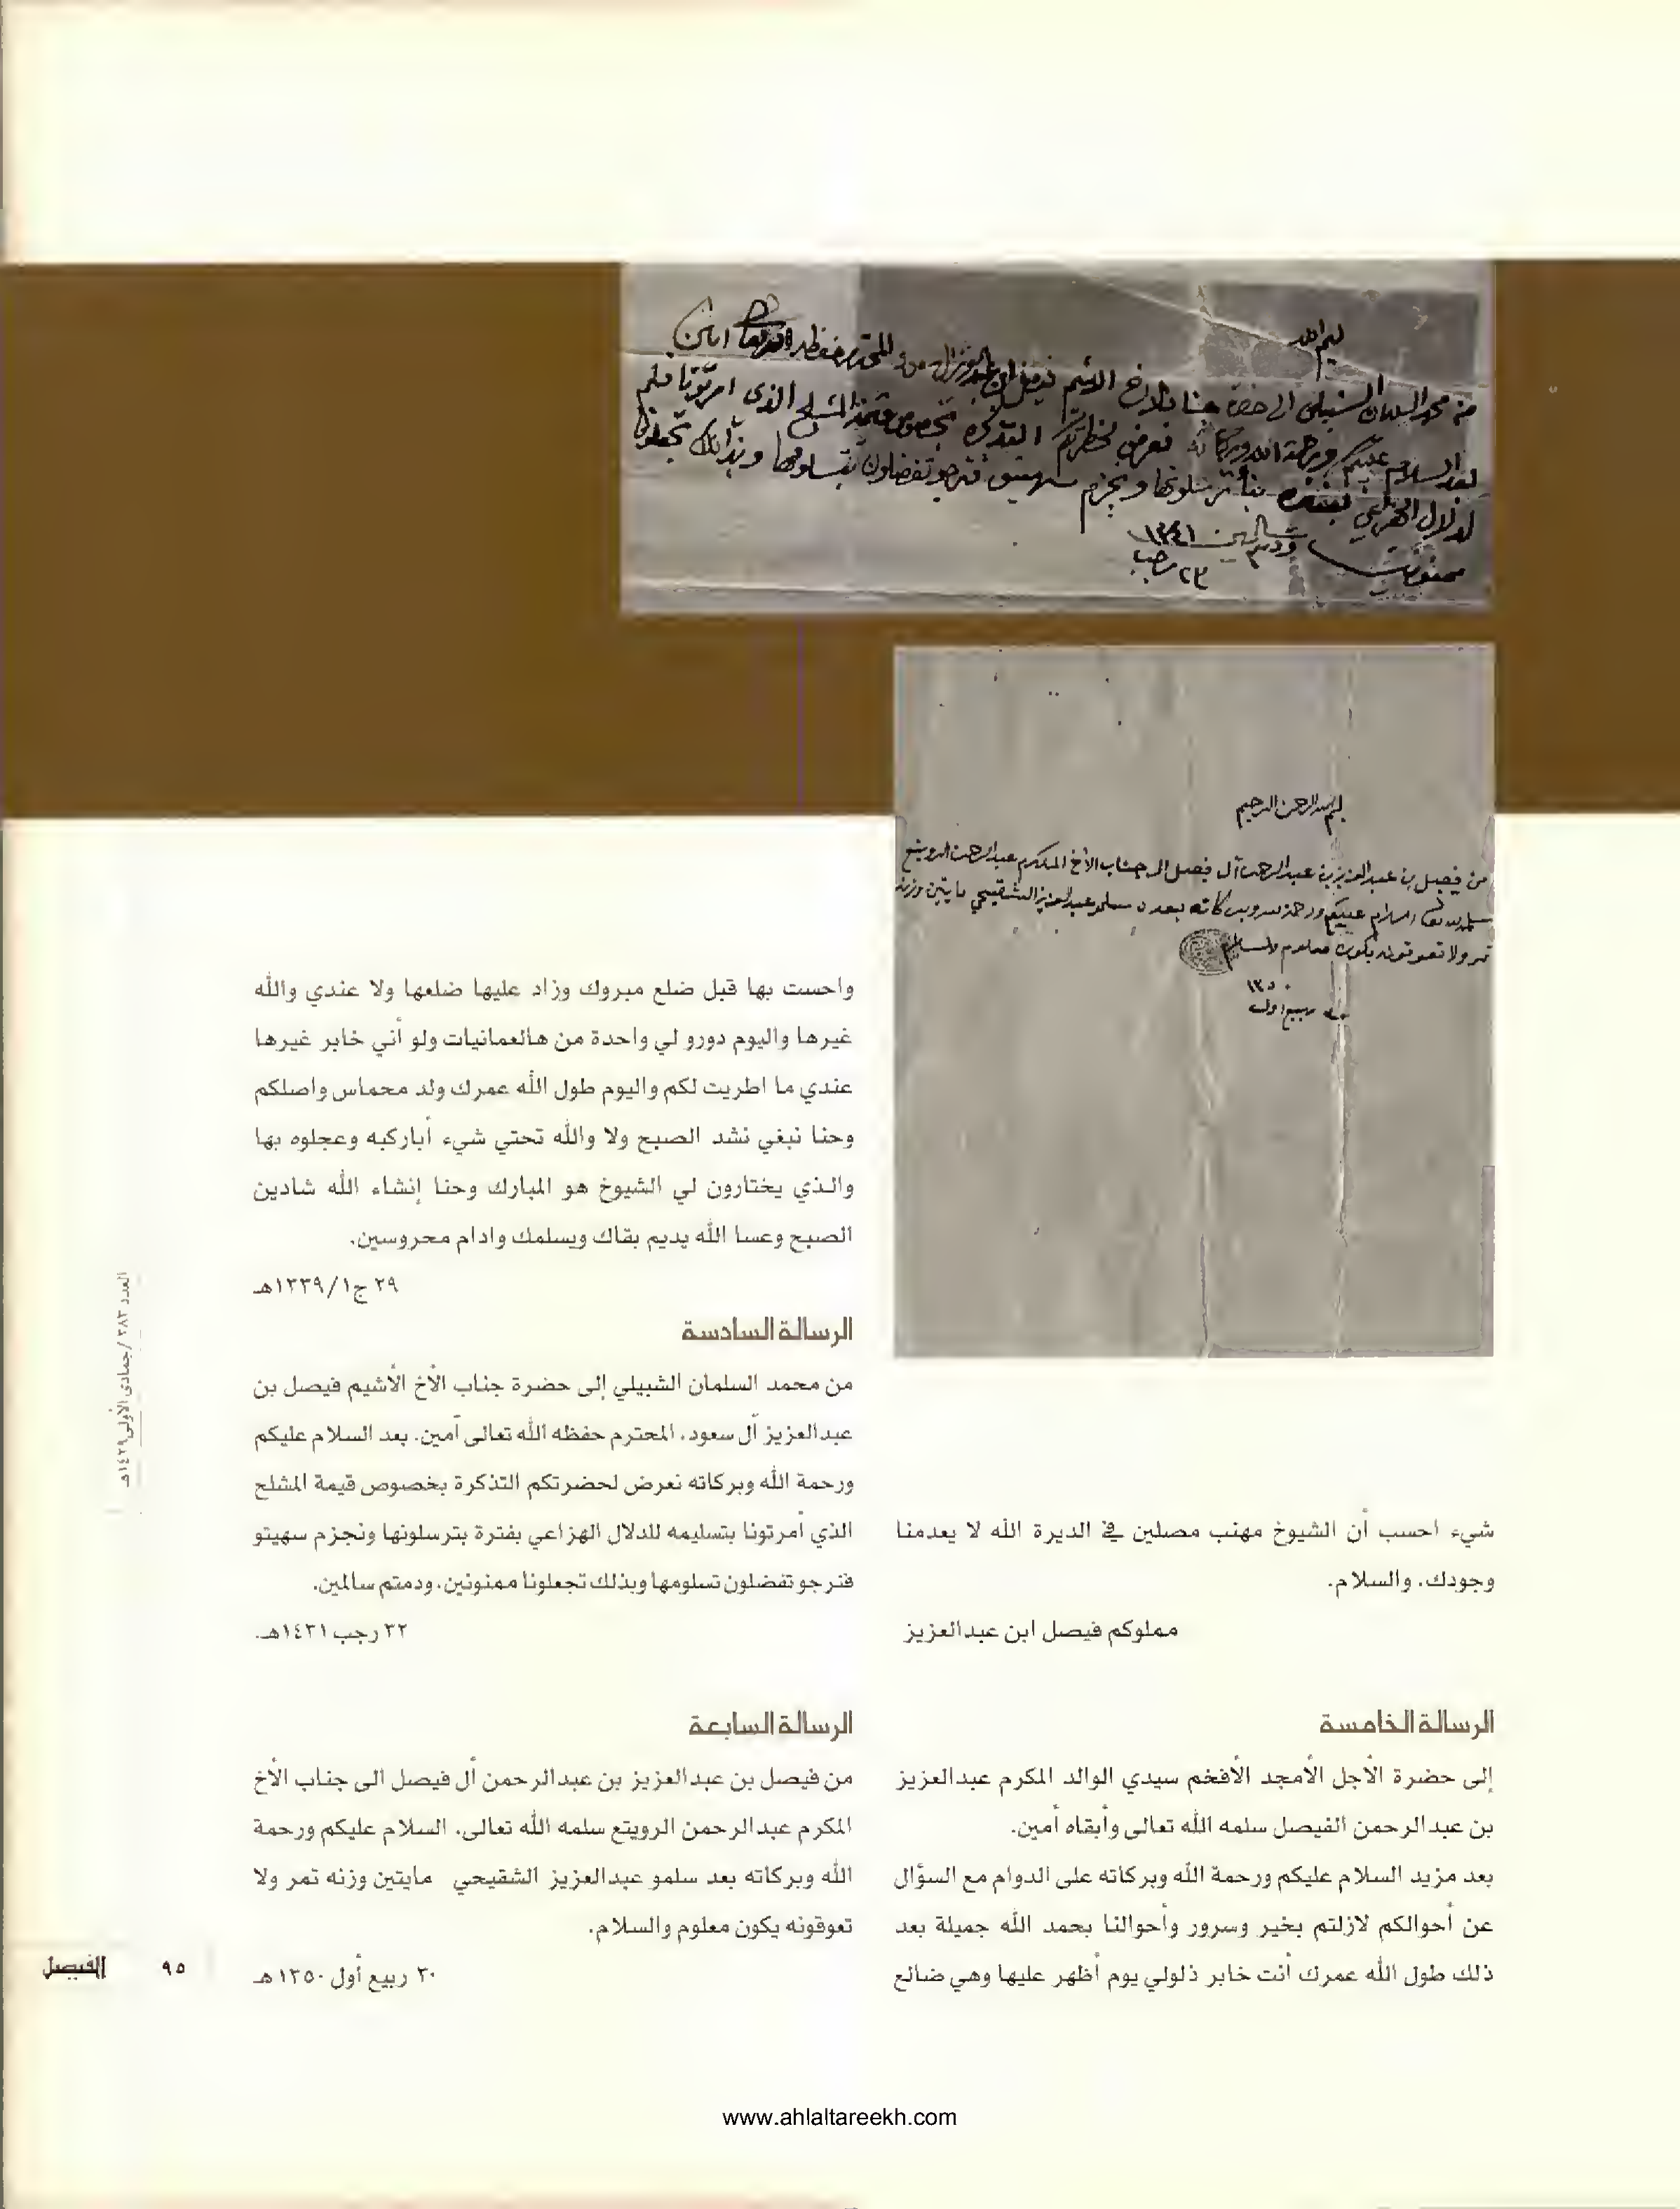 بسم الله
من محمد السلمان الشبيلي الى حضرة جناب الاخ الاشيم فيصل ابن عبدالعزيز ال سعود المحترم حفظه الله تعالى امين
بعد السلام عليكم ورحمة الله وبركاته نعرض لحضرتكم التذكره بخصوص قيمة المشلح الذي امرتونا
لدلال الهزاعي بفتره بترسلونها ونجزم سهيتو فنرجو تفضلون تسلومها وبذالك تجعلونا
ممنونين ودمتم سالمين ١٣٤١
٢٣ رجب
بسم الله الرحمن الرحيم
من فيصل بن عبدالعزيز بن عبدالرحمن آل فيصل الى جناب الأخ المكرم عبدالرحمن الرويتع
سلمه الله تعالى السلام عليكم ورحمة الله وبركاته بعد سلمو عبدالعزيز الشقيحي مايتين وزنه
تمر ولا تعوقونه يكون معلوم والسلام
١٣٥٠
٣٠ ربيع اول
شيء احسب أن الشيوخ مهنب مصلين في الديرة الله لا يعدمنا
وجودك. والسلام.
مملوكم فيصل ابن عبدالعزيز
الرسالة الخامسة
إلى حضرة الأجل الأمجد الأفخم سيدي الوالد المكرم عبدالعزيز
بن عبدالرحمن الفيصل سلمه الله تعالى وأبقاه آمين.
بعد مزيد السلام عليكم ورحمة الله وبركاته على الدوام مع السؤال
عن أحوالكم لازلتم بخير وسرور وأحوالنا بحمد الله جميلة بعد
ذلك طول الله عمرك أنت خابر ذلولي يوم أظهر عليها وهي ضالع
واحست بها قبل ضلع مبروك وزاد عليها ضلعها ولا عندي والله
غيرها واليوم دورو لي واحدة من هالعمانيات ولو أني خابر غيرها
عندي ما اطريت لكم واليوم طول الله عمرك ولد محماس واصلكم
وحنا نبغي نشد الصبح ولا والله تحتي شيء أباركبه وعجلوه بها
والذي يختارون لي الشيوخ هو المبارك وحنا إنشاء الله شادين
الصبح وعسا الله يديم بقاك ويسلمك وادام محروسين.
٢٩ ج١/ ١٣٣٩هـ
الرسالة السادسة
من محمد السلمان الشبيلي إلى حضرة جناب الأخ الأشيم فيصل بن
عبدالعزيز آل سعود، المحترم حفظه الله تعالى آمين. بعد السلام عليكم
ورحمة الله وبركاته نعرض لحضرتكم التذكرة بخصوص قيمة المشلح
الذي أمرتونا بتسليمه للدلال الهزاعي بفترة بترسلونها ونجزم سهيتو
فنرجو تفضلون تسلومها وبذلك تجعلونا ممنونين، ودمتم سالمين.
٣٢ رجب ١٤٣١هـ.
الرسالة السابعة
من فيصل بن عبدالعزيز بن عبدالرحمن آل فيصل الى جناب الأخ
المكرم عبدالرحمن الرويتع سلمه الله تعالى، السلام عليكم ورحمة
الله وبركاته بعد سلمو عبدالعزيز الشقيحي مايتين وزنه تمر ولا
تعوقونه يكون معلوم والسلام.
٣٠ ربيع أول ١٣٥٠هـ
العدد ٣٨٣ /جمادى الأولى ١٤٢٩هـ
٩٥ الفيصل
www.ahlaltareekh.com